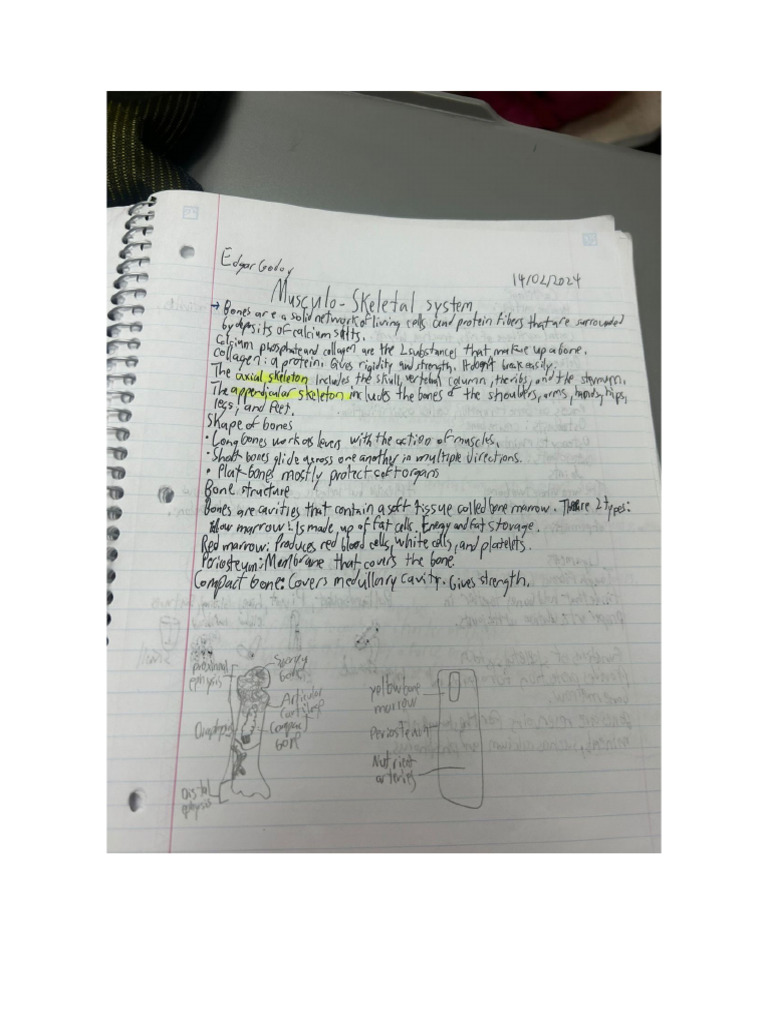 Edgar Godoy
14/02/2024
Musculo-Skeletal system
→ Bones are a solid network of living cells and protein fibers that are surrounded
by deposits of calcium salts.
Calcium phosphate and collagen are the 2 substances that make up a bone.
Collagen: a protein. Gives rigidity and strength. It doesn't break easily.
The axial skeleton includes the skull, vertebral column, the ribs, and the sternum.
The appendicular skeleton includes the bones of the shoulders, arms, hands, hips,
legs, and feet.
Shape of bones
• Long bones work as levers with the action of muscles.
• Short bones glide across one another in multiple directions.
• Flat bones mostly protect soft organs
Bone structure
Bones are cavities that contain a soft tissue called bone marrow. There are 2 types:
Yellow marrow: Is made up of fat cells. Energy and Fat storage.
Red marrow: Produces red blood cells, white cells, and platelets.
Periosteum: Membrane that covers the bone
Compact bone: Covers medullary cavity. Gives strength.
proximal
ephysis
Spongy
bone
Articular
cartilage
Compact
bone
Diaphysis
Distal
ephysis
yellow bone
marrow
Periosteum
Nutrient
arteries